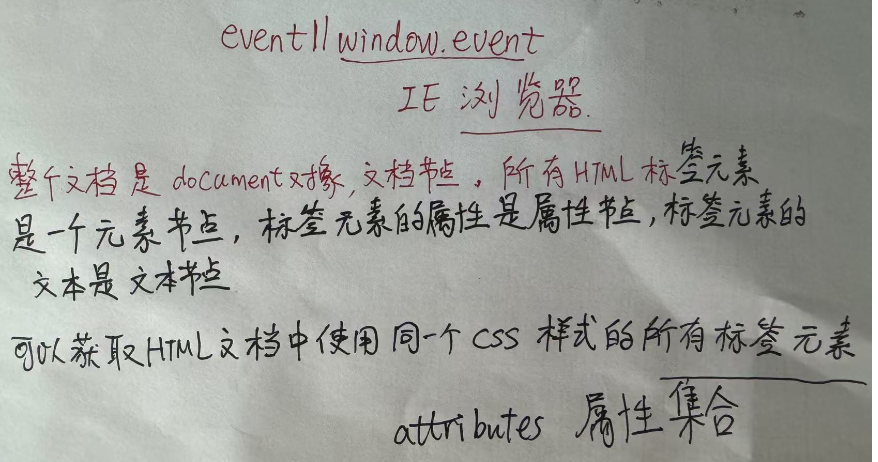 event||window.event
IE 浏览器.
整个文档是 document对象,文档节点,所有HTML标签元素
是一个元素节点,标签元素的属性是属性节点,标签元素的
文本是文本节点
可以获取HTML文档中使用同一个 CSS 样式的所有标签元素
attributes 属性集合